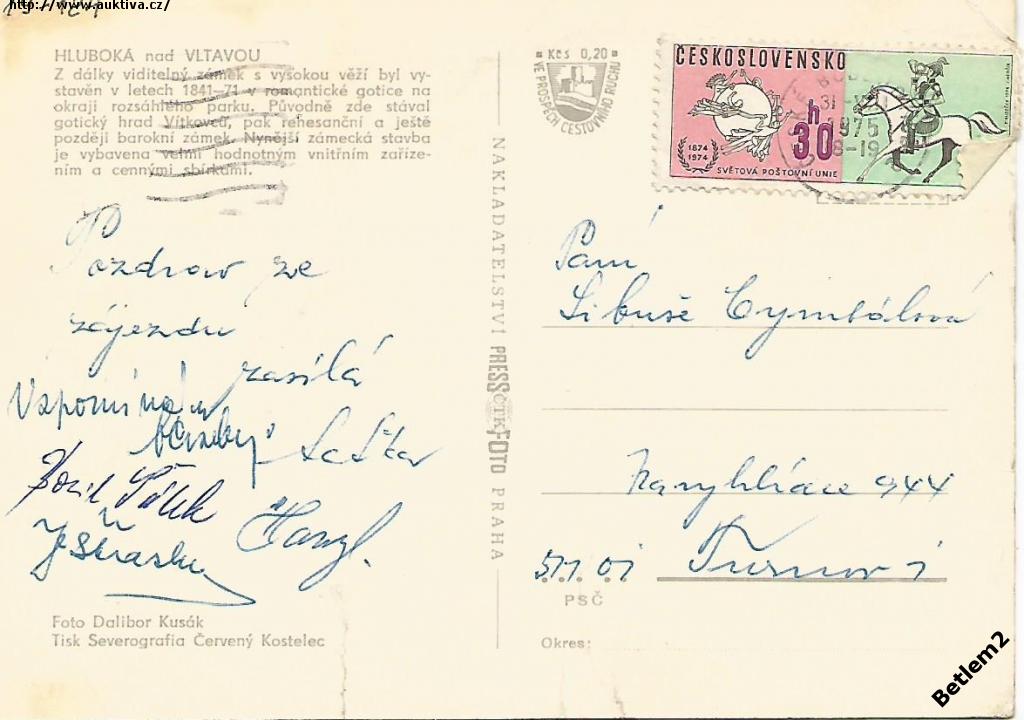 http://www.auktiva.cz/
HLUBOKÁ nad VLTAVOU
Z dálky viditelný zámek s vysokou věží byl vy-
stavěn v letech 1841–71 v romantické gotice na
okraji rozsáhlého parku. Původně zde stával
gotický hrad Vítkovců, pak renesanční a ještě
později barokní zámek. Nynější zámecká stavba
je vybavena velmi hodnotným vnitřním zaříze-
ním a cennými sbírkami.
Pozdrav ze
zájezdu
zasílá
Foto Dalibor Kusák
Tisk Severografia Červený Kostelec
NAKLADATELSTVÍ PRESSFOTO PRAHA
ČTK
Kčs 0,20
VE PROSPĚCH CESTOVNÍHO RUCHU
ČESKOSLOVENSKO
h
30
1874
1974
SVĚTOVÁ POŠTOVNÍ UNIE
1975
Paní
Libuše Cymbálová
Na vyhlídce 944
511 01 Turnov 1
PSČ
Okres:
Betlem2